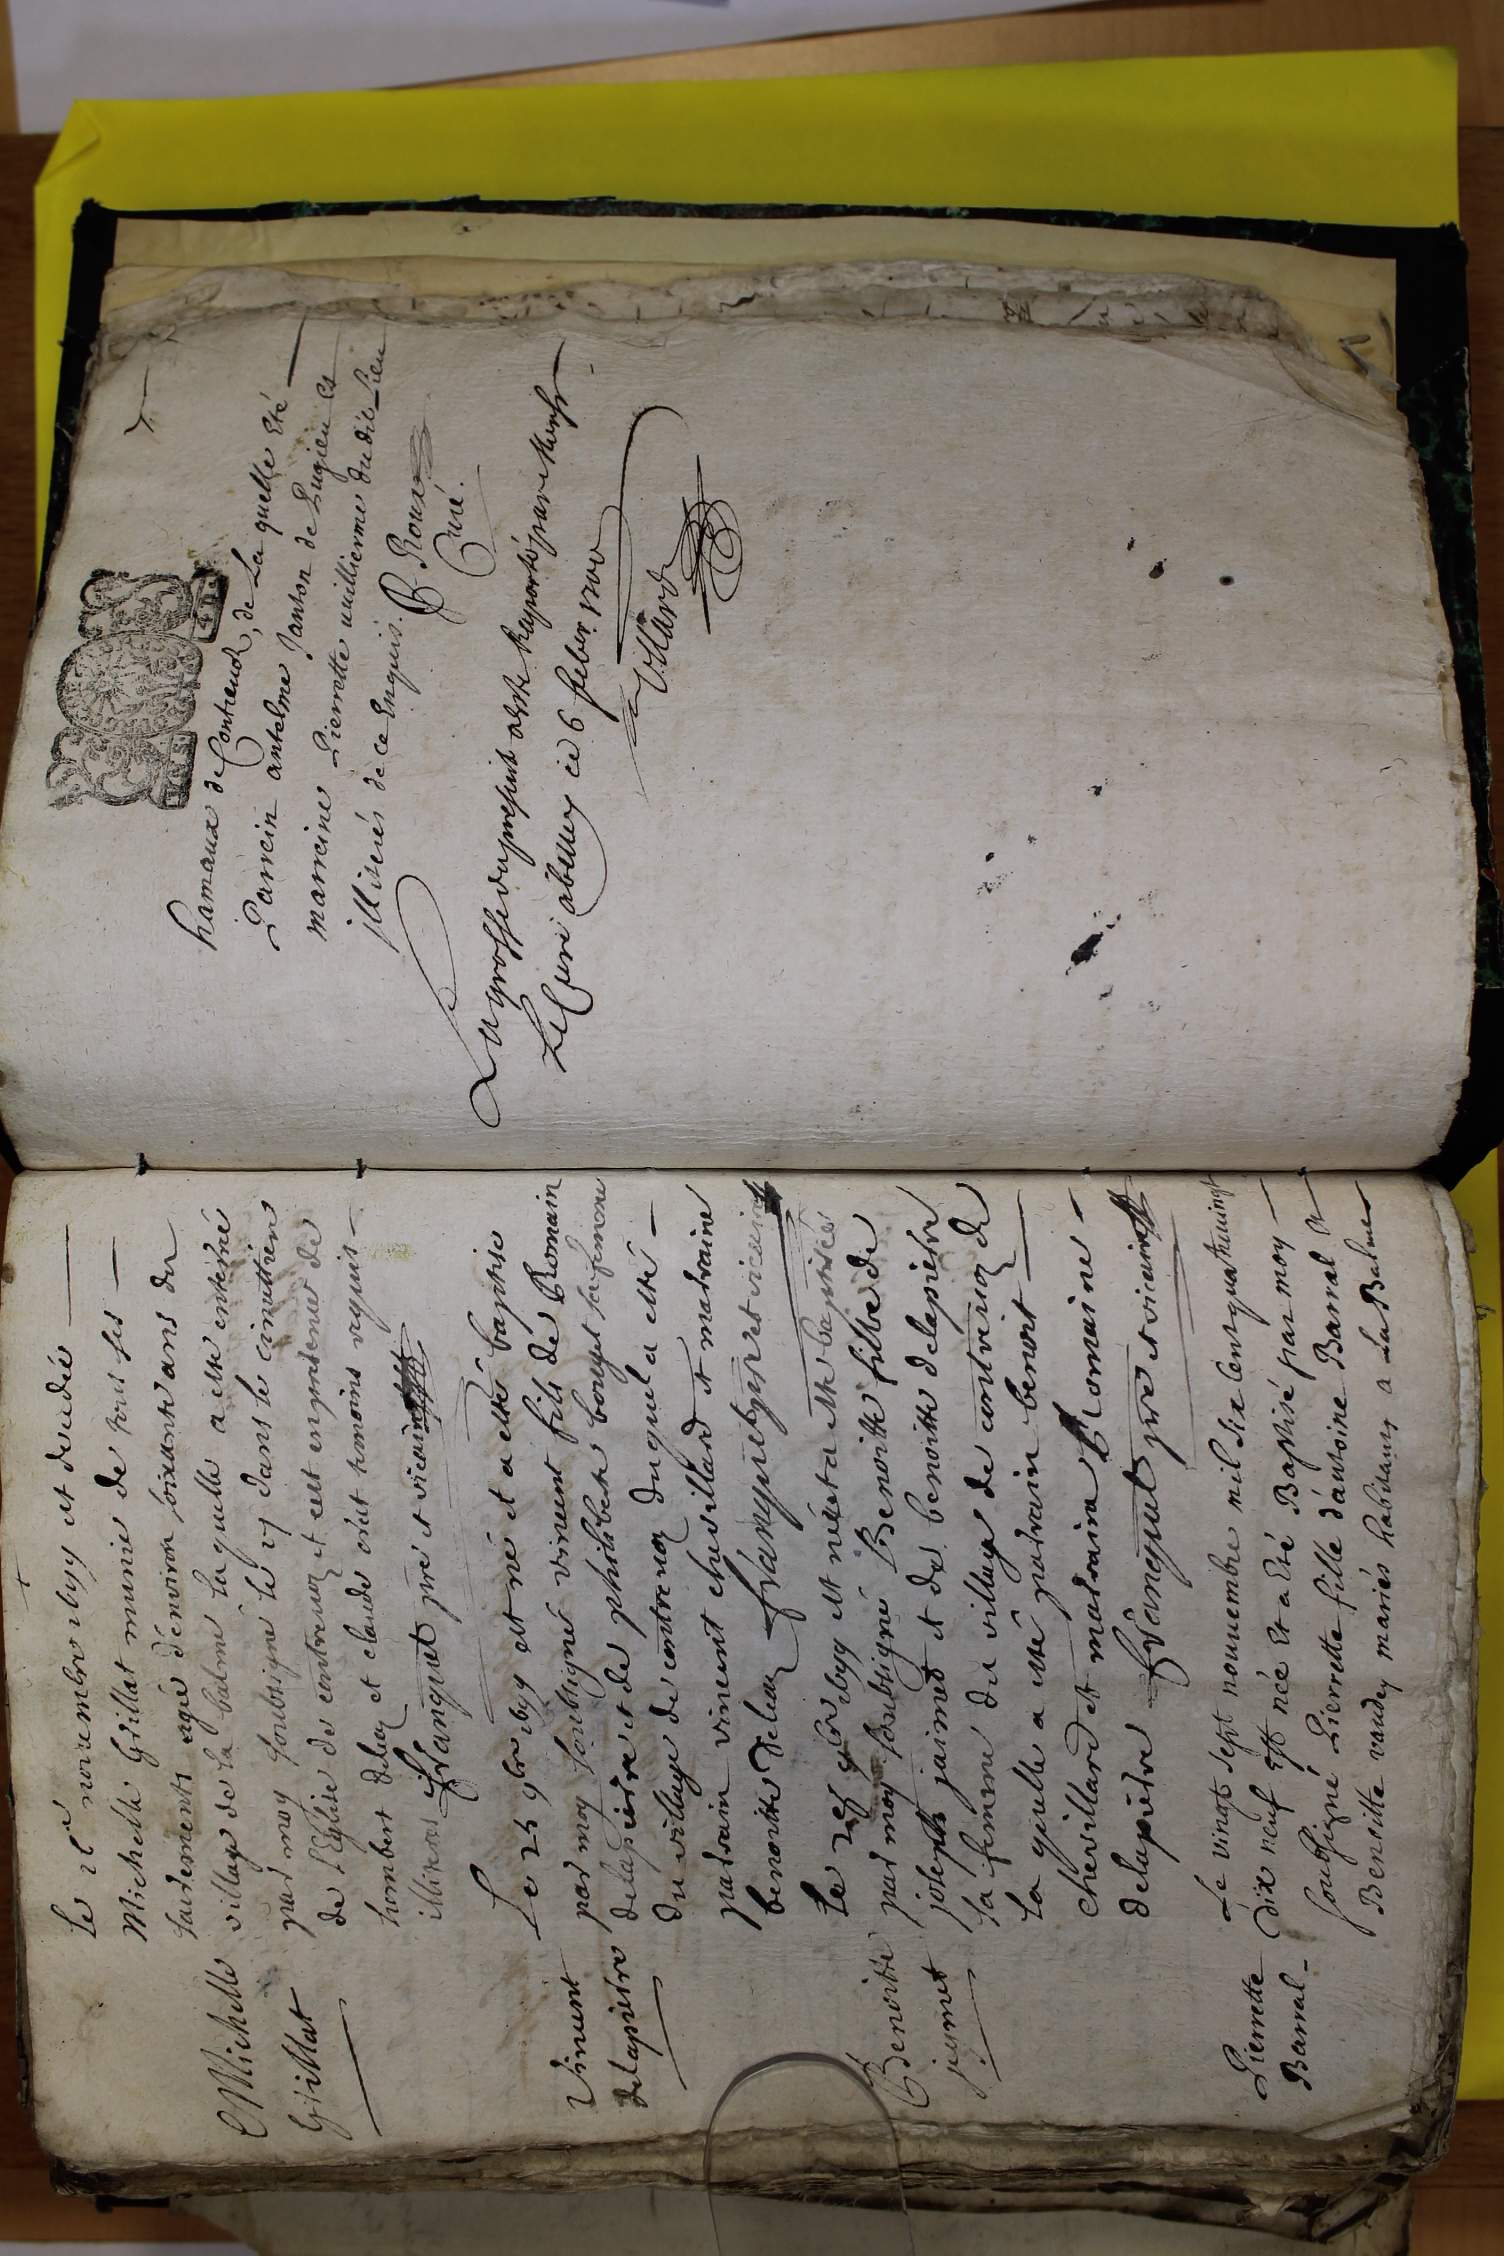 Le 26e novembre 1699 est decedée
Michelle Grillat munie de tous les
sacrements agée d'environ soixante ans du
village de la balme la quelle a esté enterrée
par moy soubsigné le 27 dans le cimettiere
de l'Eglise de contrevoz et ce en presence de
humbert et claude temoins requis
illiteres Franquet pre et vicaire
Michelle
Grillat
Le 25 9bre 1699 est né et a esté baptisé
par moy soubsigné vincent fils de Romain
delapierre et de philiberte bouget sa femme
du village de contrevoz duquel a esté
parrain vincent chevillard et marraine
benoitte Franquet pre et vicaire
Vincent
delapierre
Le 28 9bre 1699 est née et a esté baptisée
par moy soubsigné Benoitte fille de
joseph jaimet et de benoitte delapierre
sa femme du village de contrevoz de
la quelle a esté parrain benoit
chevillard et marraine Romaine
delapierre Franquet pre et vicaire
Benoitte
jeymet
Le vingt sept nouuembre mil six Cent quattreuingt
dix neuf Est née Et a Eté Baptisé par moy
soussigné Pierrette fille d'antoine Barral et
Benoitte vaudey mariés habitans a La Balme
Pierrette
Barral
hamaux de Contreuoz, de La quelle Eté
Parrein antelme Janton de Pugieu et
marreine Pierrette vuillierme du dit Lieu
illiterés de ce Enquis. B. Roux
Curé.
La grosse du present a esté Raporté par
Le Curé a belley ce 6 feber 1700
Villard